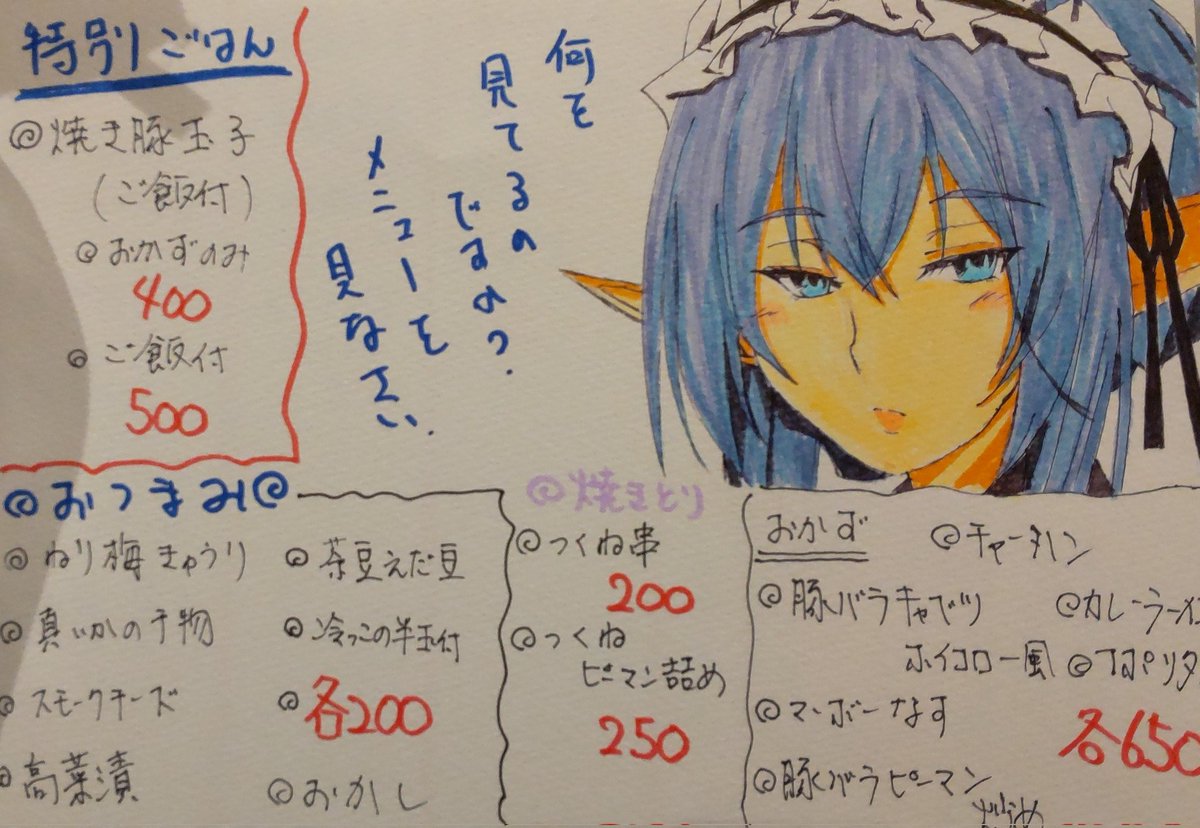 特別ごはん
◎焼き豚玉子
(ご飯付)
◎おかずのみ
400
◎ご飯付
500
何を
見てるの
ですの?
メニューを
見なさい.
◎おつまみ◎
◎ねり梅きゅうり
◎真いかの干物
◎スモークチーズ
◎高菜漬
◎茶豆えだ豆
◎冷っこの半玉付
◎各200
◎おかし
◎焼きとり
◎つくね串
200
◎つくね
ピーマン詰め
250
おかず
◎豚バラキャベツ
ホイコロー風
◎マーボーなす
◎豚バラピーマン
◎チャーハン
◎カレーラー
各650